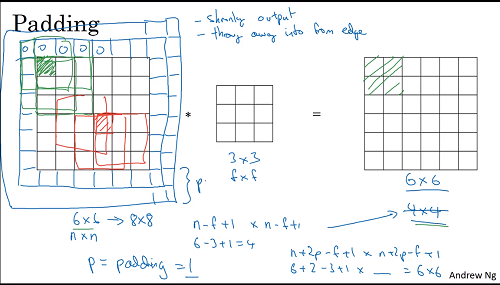 Padding
- shrinky output
- throw away info from edge
0 0 0 0 0
*
=
3 × 3
f × f
p
6 × 6
6 × 6 → 8 × 8
n × n
n-f+1 × n-f+1
6-3+1 = 4
4 × 4
p = padding = 1
n+2p-f+1 × n+2p-f+1
6+2-3+1 × __ = 6×6
Andrew Ng